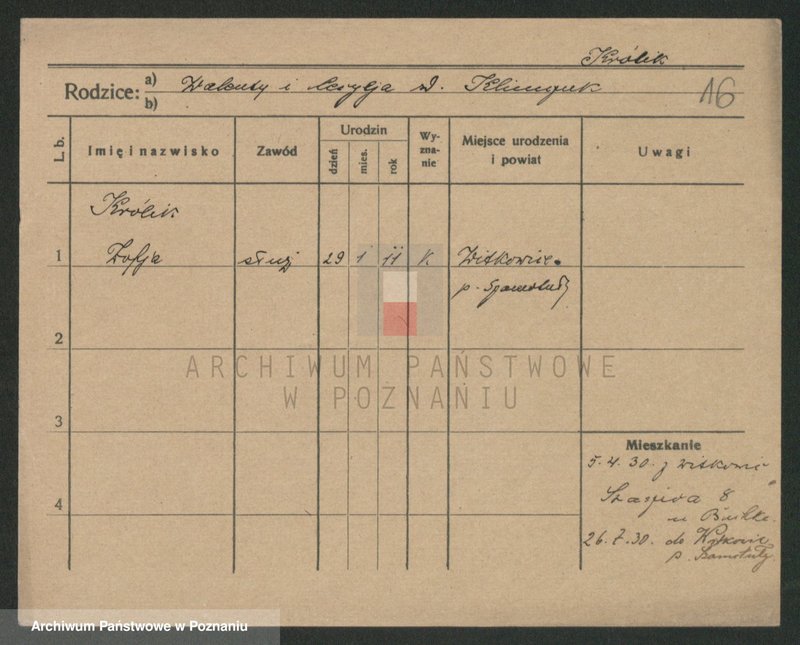 Królik
Rodzice: a) b) Walenty i Cecylja d. Klimczuk
16
L. b.
Imię i nazwisko
Zawód
Urodzin
dzień
mies.
rok
Wy-
zna-
nie
Miejsce urodzenia
i powiat
Uwagi
Królik
1 Zofja służ 29 1 11 k. Witkowice
p. Szamotuły
2
ARCHIWUM PAŃSTWOWE
W POZNANIU
3
Mieszkanie
5. 4. 30. z Witkowic
4
8
u
26. 7. 30. do Witkowic
p. Szamotuły
Archiwum Państwowe w Poznaniu